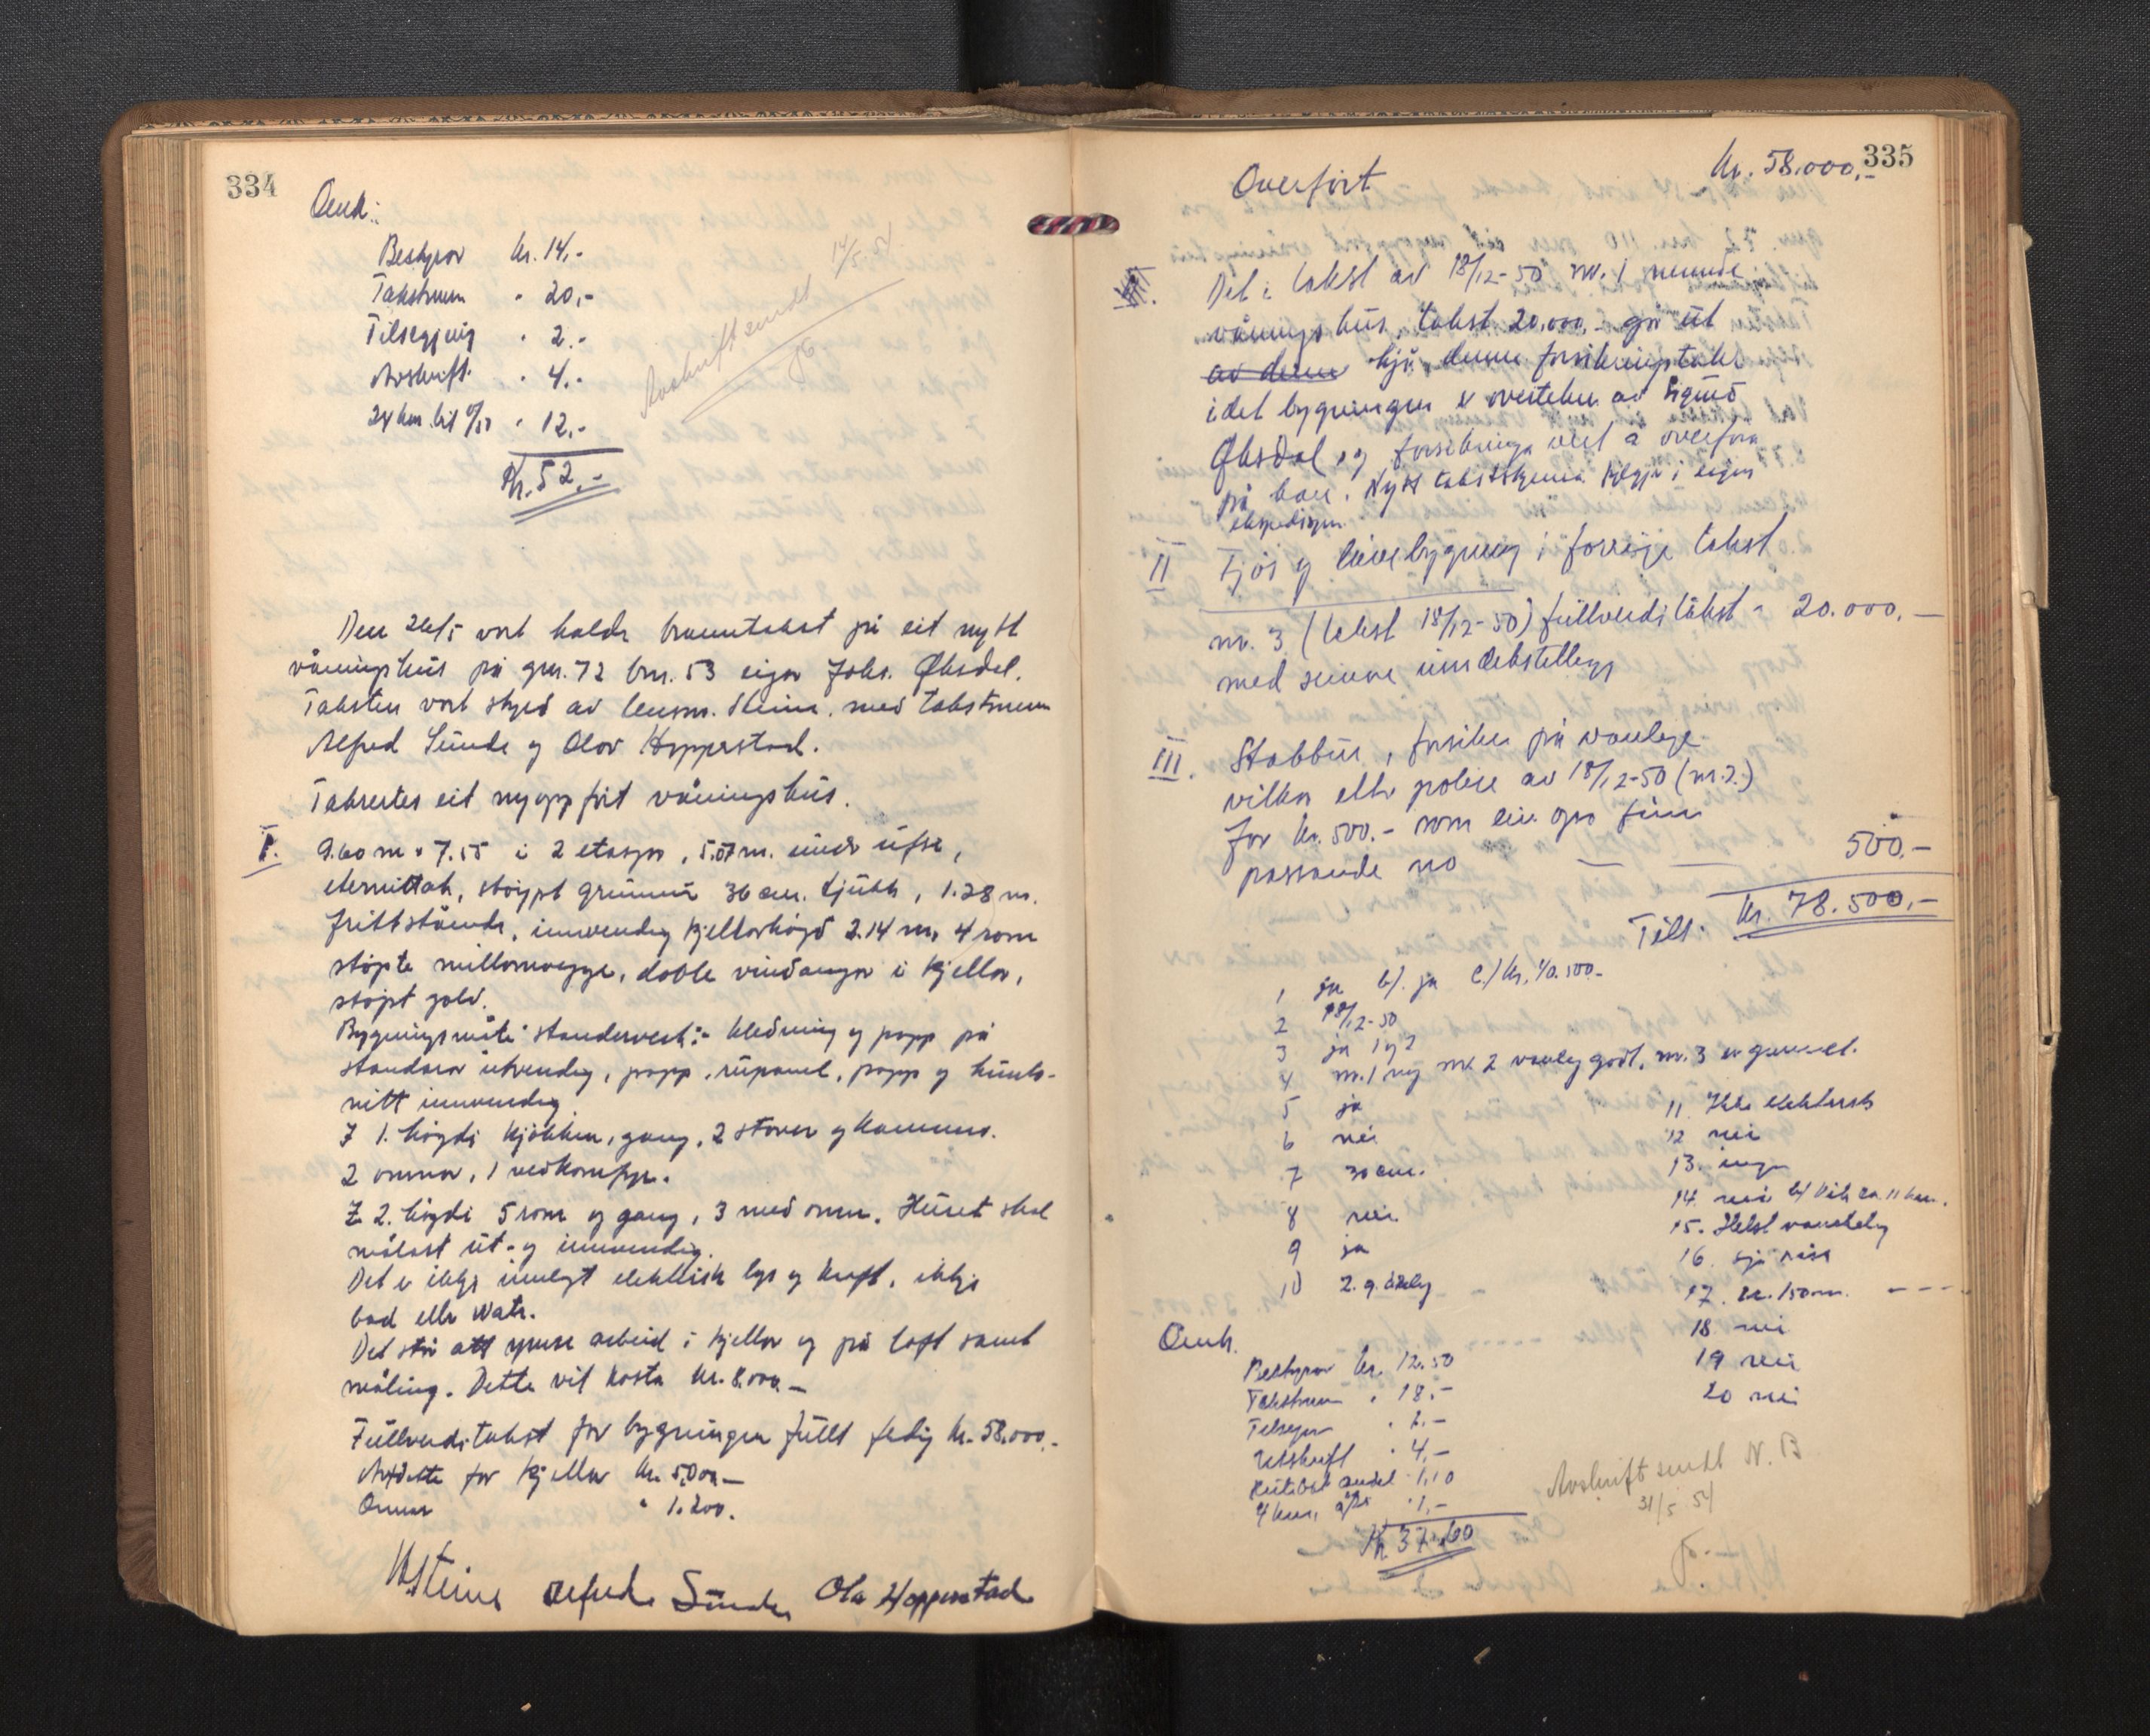 334
Omk:
Bestyrar kr. 14,-
Takstmenn " 20,-
Tilsegjing " 2.-
Avskrift " 4.-
24 km. bil " 12.-
Kr. 52.-
Avskrift sendt 14/5-54
Den 26/5 vart halde branntakst på eit nytt
våningshus på gnr. 72 bnr. 53 eigar Johs. Øksdal.
Taksten vart styrd av lensm. Steine, med takstmenn
Alfred Sunde og Olav Hopperstad.
Taksertes eit nyoppført våningshus.
I. 9.60 m x 7.55 i 2 etasjer, 5.07 m. under ufse,
eternittak, støypt grunnmur 36 cm. tjukk, 1.28 m.
frittståande, innvendig kjellarhøgd 2.14 m, 4 rom
støpte millomvegge, doble vindaugor i kjellar,
støpt golv.
Bygningsmåte: standerverk:- kledning og papp på
standarar utvendig, papp, rupanel, papp og kunts-
nitt innvendig.
I 1. høgdi kjøkken, gang, 2 stover og kammers.
2 omnar, 1 vedkomfyr.
I 2. høgdi 5 rom og gang, 3 med omn. Huset skal
målast ut- og innvendig.
Det er ikkje innlagt elektrisk lys og kraft, ikkje
bad eller Water.
Det står att ymse arbeid i kjellar og på loft samt
måling. Dette vil kosta kr. 8.000.-
Fullverditakst for bygningen fullt ferdig kr. 58.000.-
Av dette for kjellar kr. 5.000.-
Omnar " 1.200.
Steine Alfred Sunde Ola Hopperstad
335
Overført kr. 58.000,-
Det i takst av 18/12-50 nr. 1 nemnde
våningshus, takst 20.000,- går ut
av denne hjå denne forsikringstakar
idet bygningen er overteken av Sigurd
Øksdal og forsikringa vert å overføra
på han. Nytt takstskjema fylgjer i eigen
ekspedisjon.
II Fjøs og løebygning i forrige takst
nr. 3 (takst 18/12-50) fullverditakst " 20.000,-
med seinare
III. Stabbur, forsikra på vanlege
vilkår etter polise av 18/12-50 (nr. 2.)
for kr. 500.- som ein og so finn
passande no 500,-
Tils. kr. 78.500,-
1 ja b). ja c.) kr. 40.500.-
2 18/12-50
3 ja 1 og 2
4 nr. 1 ny nr. 2 vanleg godt, nr. 3 er gammal.
5 ja
6 nei
7 30 cm.
8 nei
9 ja
10 2. g. årleg
11. Ikke elektrisk
12 nei
13. inga
14. nei b/ Vik ca 11 km.
15. Helst vanskeleg
16.
17. ca. 150 m.
18 nei
19 nei
20 nei
Omk.
Bestyrar kr. 12.50
Takstmenn " 18.-
Tilsegn " 2.-
Utskrift " 4,-
andel 1,10
4 km, " 1,-
Kr. 37.60
Avskrift sendt N. B
31/5 54